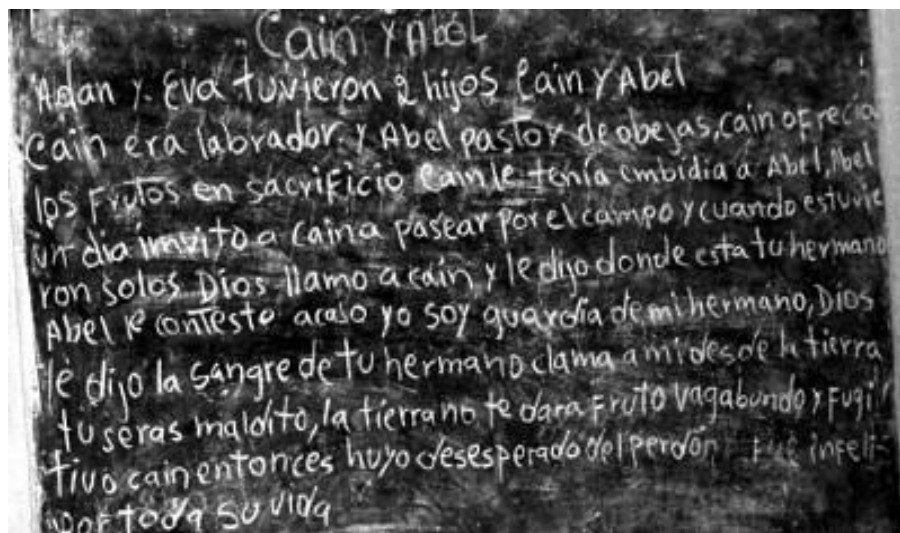 Cain Y Abel
Adan y Eva tuvieron 2 hijos Cain Y Abel
Cain era labrador y Abel pastor de obejas, cain ofrecia
los Frutos en sacrificio Cain le tenía embidia a Abel, Abel
un dia imvito a caina pasear por el campo y cuando estuvie
ron solos Dios llamo a cain y le dijo donde esta tu hermano
Abel le contesto acaso yo soy guardia de mi hermano, Dios
le dijo la sangre de tu hermano clama a mi desde la tierra
tu seras maldito, la tierra no te dara Fruto vagabundo y Fugi
tivo cain entonces huyo desesperado del perdon Fue infeli
por toda su vida